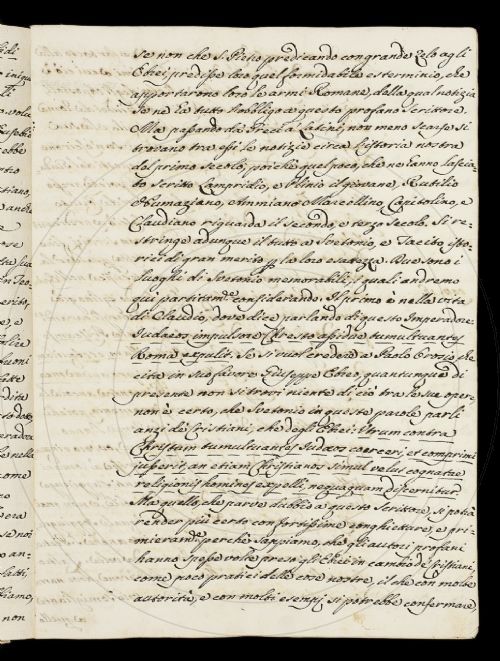 se non che S. Pietro predicando con grande zelo agli
Ebrei, predisse loro quel formidabile esterminio, che
apportarono loro le armi Romane, della qual notizia
se ne ha tutto l'obbligo a questo profano scrittore.
Ma passando da' Greci a' Latini, non meno scarse si
trovano tra essi le notizie circa l'istoria nostra
del primo secolo, poichè quel poco, che ne hanno lascia-
to scritto Lampridio, e Plinio il giovane, Rutilio
Numaziano, Ammiano Marcellino, Capitolino, e
Claudiano riguarda il secondo, e terzo secolo. Si re-
stringe adunque il tutto a Svetonio, e Tacito, Isto-
rici di gran merito per la loro esatezza. Due sono i
luoghi di Svetonio memorabili, i quali andremo
qui partitam.e considerando. Il primo è nella vita
di Claudio, dove dice parlando di questo Imperadore:
Iudaeos impulsore Chresto assidue tumultuantes
Roma expulit. Se si vuol credere a Paolo Orosio, che
cita in suo favore Giuseppe Ebreo, quantunque di
presente non si trovi niente di ciò tra le sue opere,
non è certo, che Svetonio in queste parole parli
anzi de' Cristiani, che degli Ebrei: Utrum contra
Christum tumultuantes Iudaeos coerceri, et comprimi
jusserit, an etiam Christianos simul velut cognatae
religionis homines expelli, nequaquam discernitur.
Ma quello, che parve dubbio a questo Scrittore, si potrà
render più certo con fortissime conghietture, e pri-
mieram.e perchè sappiamo, che gli autori profani
hanno spesse volte preso gli Ebrei in cambio de' Cristiani,
come poco pratici delle cose nostre, il che con molte
autorità, e con molti esempj si potrebbe confermare,